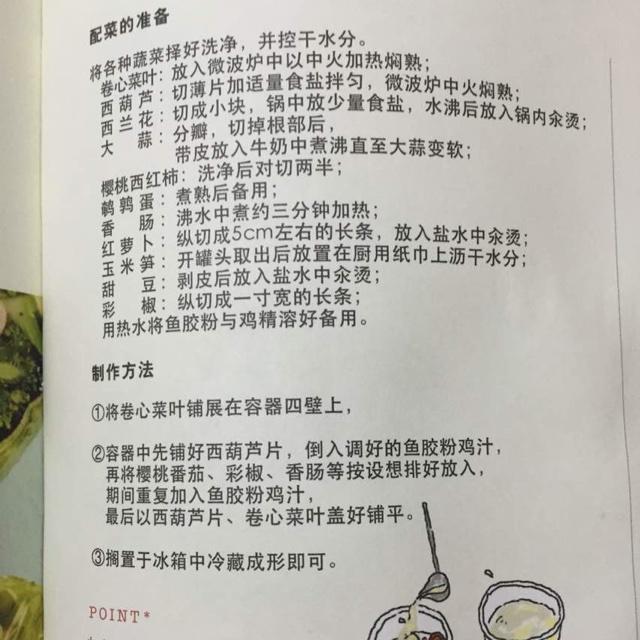 配菜的准备
将各种蔬菜择好洗净，并控干水分。
卷心菜叶：放入微波炉中以中火加热焖熟；
西葫芦：切薄片加适量食盐拌匀，微波炉中火焖熟；
西兰花：切成小块，锅中放少量食盐，水沸后放入锅内汆烫；
大蒜：分瓣，切掉根部后，
带皮放入牛奶中煮沸直至大蒜变软；
樱桃西红柿：洗净后对切两半；
鹌鹑蛋：煮熟后备用；
香肠：沸水中煮约三分钟加热；
红萝卜：纵切成5cm左右的长条，放入盐水中汆烫；
玉米笋：开罐头取出后放置在厨用纸巾上沥干水分；
甜豆：剥皮后放入盐水中汆烫；
彩椒：纵切成一寸宽的长条；
用热水将鱼胶粉与鸡精溶好备用。
制作方法
①将卷心菜叶铺展在容器四壁上，
②容器中先铺好西葫芦片，倒入调好的鱼胶粉鸡汁，
再将樱桃番茄、彩椒、香肠等按设想排好放入，
期间重复加入鱼胶粉鸡汁，
最后以西葫芦片、卷心菜叶盖好铺平。
③搁置于冰箱中冷藏成形即可。
POINT*